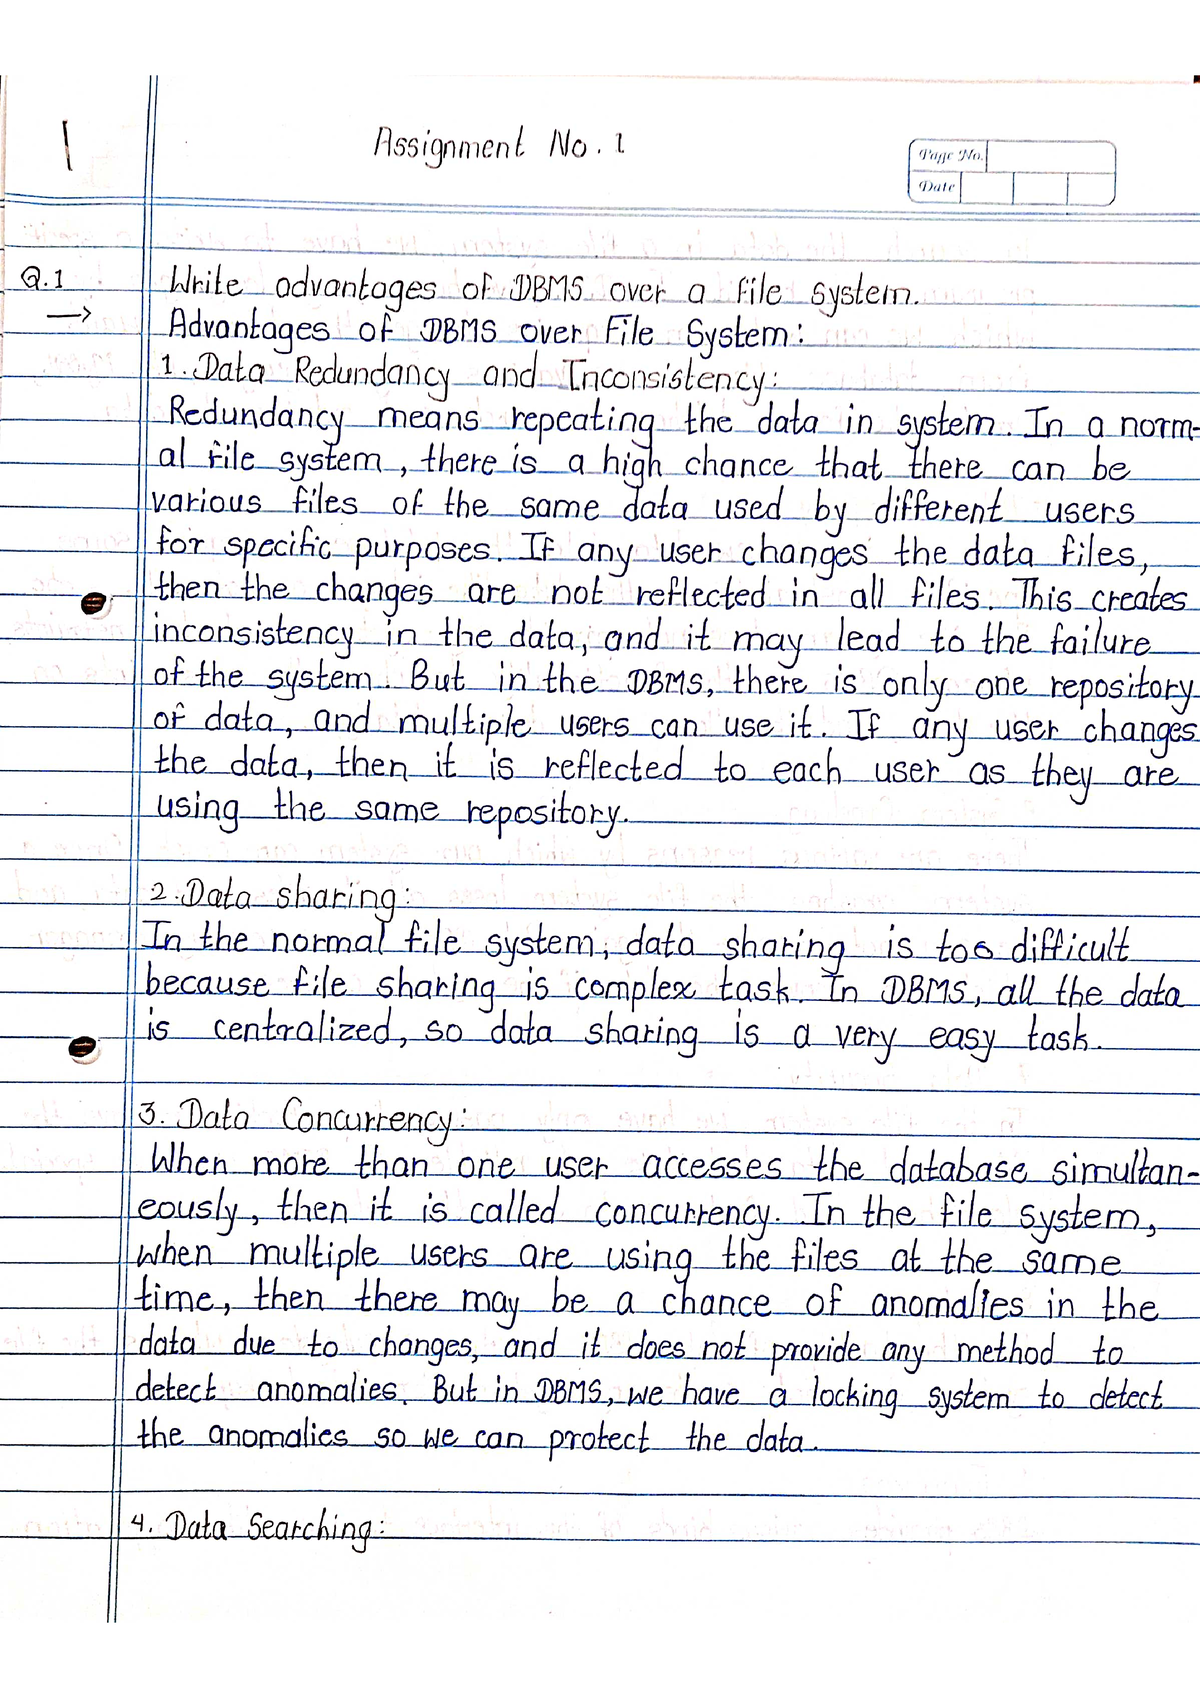 1
Assignment No. 1
Page No.
Date
Q.1 Write advantages of DBMS over a file system.
→ Advantages of DBMS over File System:
1. Data Redundancy and Inconsistency:
Redundancy means repeating the data in system. In a norm-
al file system, there is a high chance that there can be
various files of the same data used by different users
for specific purposes. If any user changes the data files,
then the changes are not reflected in all files. This creates
inconsistency in the data, and it may lead to the failure
of the system. But in the DBMS, there is only one repository
of data, and multiple users can use it. If any user changes
the data, then it is reflected to each user as they are
using the same repository.
2. Data sharing:
In the normal file system, data sharing is too difficult
because file sharing is complex task. In DBMS, all the data
is centralized, so data sharing is a very easy task.
3. Data Concurrency:
When more than one user accesses the database simultan-
eously, then it is called concurrency. In the file system,
when multiple users are using the files at the same
time, then there may be a chance of anomalies in the
data due to changes, and it does not provide any method to
detect anomalies. But in DBMS, we have a locking system to detect
the anomalies so we can protect the data.
4. Data Searching: